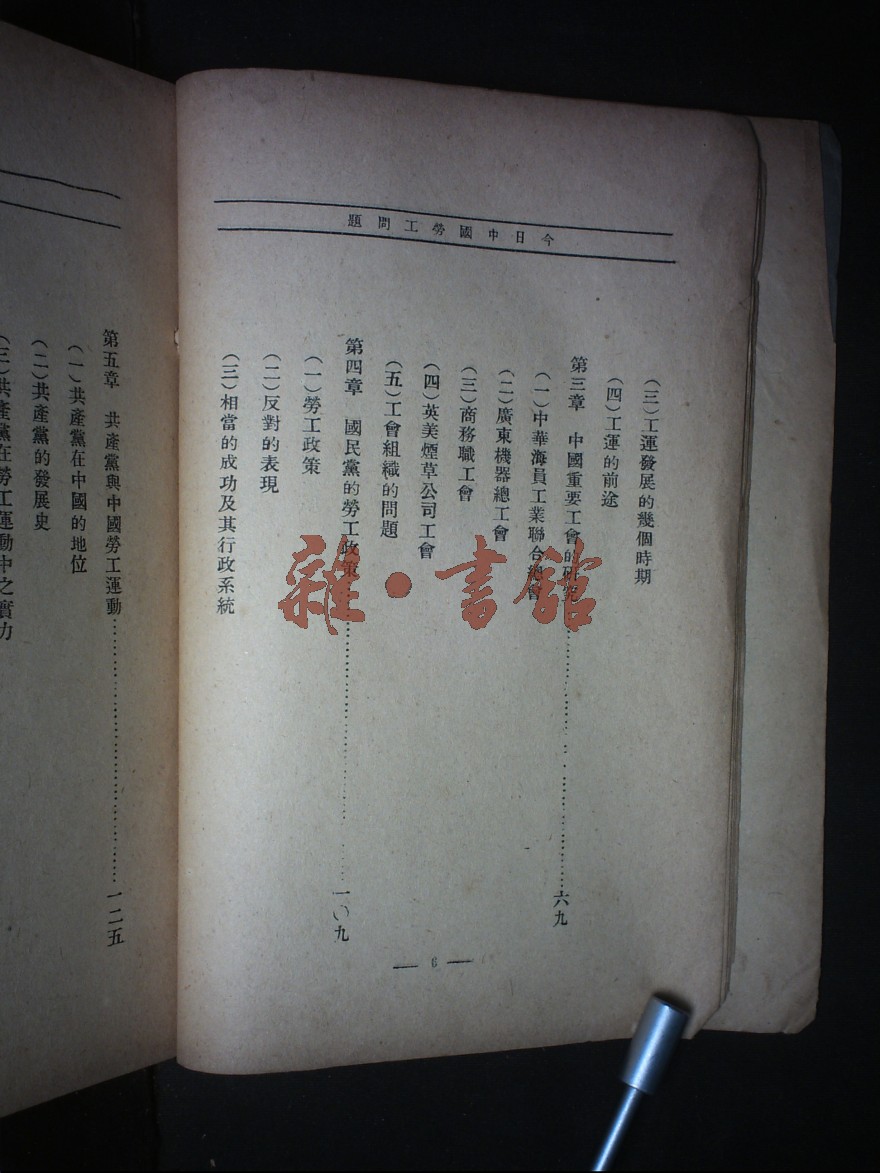 今日中國勞工問題
（三）工運發展的幾個時期
（四）工運的前途
第三章 中國重要工會的研究……六九
（一）中華海員工業聯合總會
（二）廣東機器總工會
（三）商務職工會
（四）英美煙草公司工會
（五）工會組織的問題
第四章 國民黨的勞工政策……一〇九
（一）勞工政策
（二）反對的表現
（三）相當的成功及其行政系統
— 6 —
第五章 共產黨與中國勞工運動……一二五
（一）共產黨在中國的地位
（二）共產黨的發展史
（三）共產黨在勞工運動中之實力
雜·書館